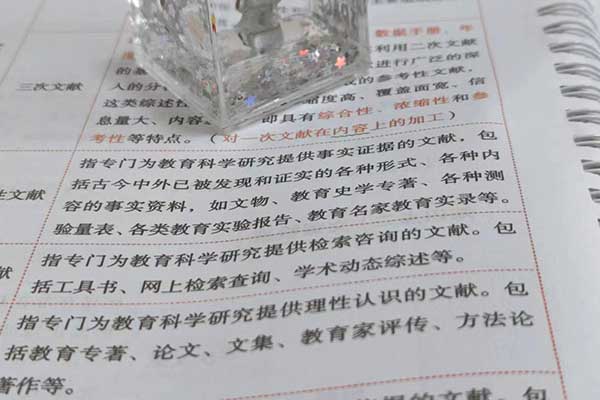 数据手册、年
利用二次文献
进行广泛的深
三次文献
人的分
的参考性文献,
这类综述性
缩度高、覆盖面宽、信
息量大、内容
即具有综合性、浓缩性和参
考性等特点。(对一次文献在内容上的加工)
指专门为教育科学研究提供事实证据的文献,包
括古今中外已被发现和证实的各种形式、各种内
性文献
容的事实资料,如文物、教育史学专著、各种测
验量表、各类教育实验报告、教育名家教育实录等。
指专门为教育科学研究提供检索咨询的文献。包
文献
括工具书、网上检索查询、学术动态综述等。
指专门为教育科学研究提供理性认识的文献。包
括教育专著、论文、文集、教育家评传、方法论
献
著作等。
的文献。包